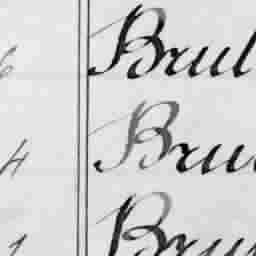 6 Brul
4 Bru
1 Bru